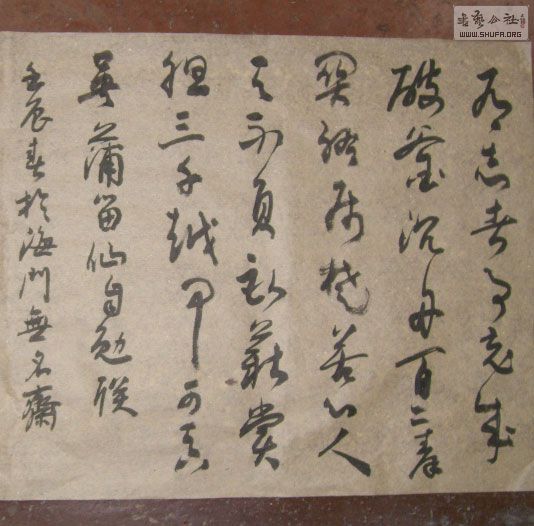 有志者事竟成
破釜沉舟百二秦
関終属楚苦心人
天不負卧薪嘗
胆三千越甲可吞
吴蒲留仙自勉联
壬辰春於海门無名齋
書藝公社
WWW.SHUFA.ORG